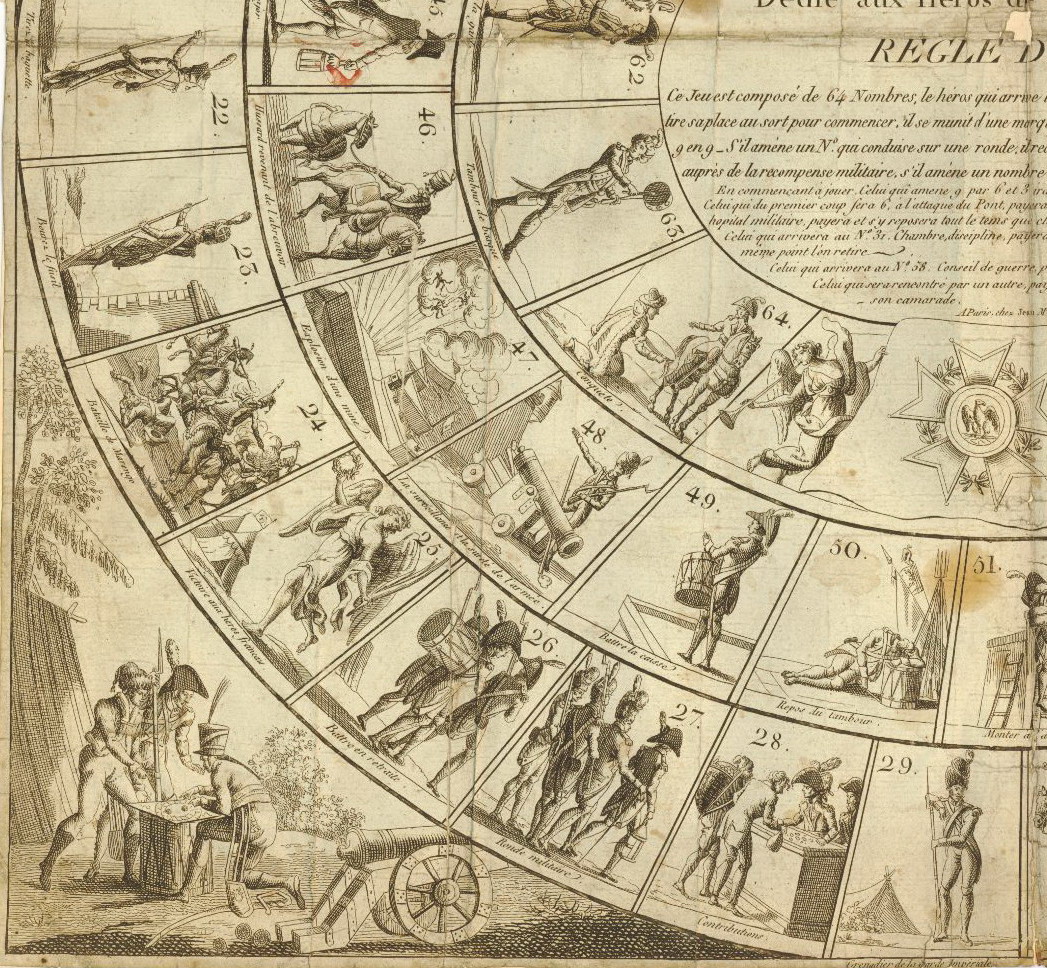 Dédié aux Héros de
REGLE D
Ce Jeu est composé de 64 Nombres, le héros qui arrive
tire sa place au sort pour commencer, il se munit d'une
9 en 9 _ S'il amène un N.º qui conduise sur une ronde, il
auprès de la recompense militaire, s'il amène un nombre
En commençant à jouer. Celui qui amene 9 par 6 et 3
Celui qui du premier coup fera 6, à l'attaque du Pont, payera
hopital militaire, payera et s'y reposera tout le tems que
Celui qui arrivera au N.º 31. Chambre, discipline, payera
même point l'on retire
Celui qui arrivera au N.º 58. Conseil de guerre,
Celui qui sera rencontre par un autre,
son camarade.
A Paris, chez Jean
62.
63
Tambour de basque
64.
Conquète.
46
Hussard revenant de l'abreuvoir
47
Explosion d'une mine
48.
La surveillance fait la sureté de l'armée.
49.
Battre la caisse
50.
Repos du tambour.
51.
Monter
22.
baguette.
23.
le fusil
24.
Bataille de Maringo
25
Victoire aux héros français
26.
Battre en retraite
27.
Ronde militaire.
28.
Contributions.
29.
Grenadier de la garde Imperiale